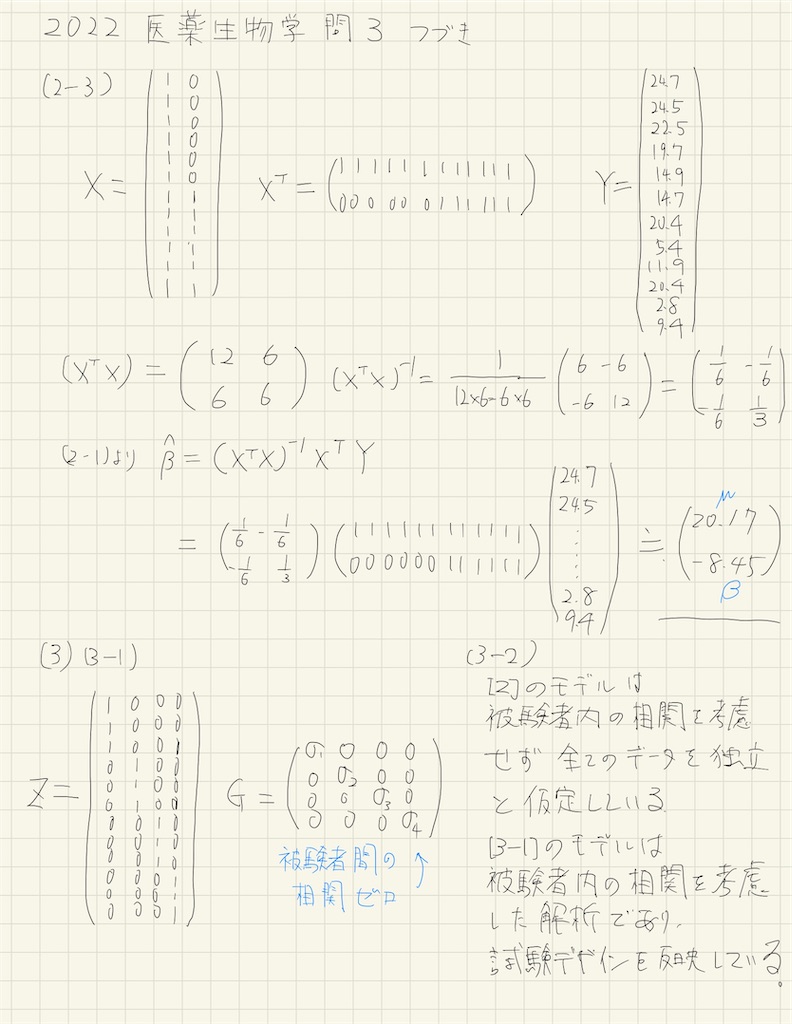 2022 医薬生物学 問3 つづき
(2-3)
X = (1 0
1 0
1 0
1 0
1 0
1 0
1 1
1 1
1 1
1 1
1 1
1 1)
X^T = (1 1 1 1 1 1 1 1 1 1 1 1
0 0 0 0 0 0 1 1 1 1 1 1)
Y = (24.7
24.5
22.5
19.7
14.9
14.7
20.4
5.4
11.9
20.4
2.8
9.4)
(X^T X) = (12 6
6 6)
(X^T X)^-1 = 1/(12×6-6×6) (6 -6
-6 12) = (1/6 -1/6
-1/6 1/3)
(2-1)より β̂ = (X^T X)^-1 X^T Y
= (1/6 -1/6
-1/6 1/3) (1 1 1 1 1 1 1 1 1 1 1 1
0 0 0 0 0 0 1 1 1 1 1 1) (24.7
24.5
⋮
2.8
9.4) ≒ (20.17
-8.45)
μ
β
(3) (3-1)
Z = (1 0 0 0
1 0 0 0
1 0 0
0 1 0 0
0 1 0 0
0 1 0 0
0 0 1 0
0 0 1 0
0 0 1 0
0 0 0 1
0 0 0 1
0 0 0 1)
G = (σ1 0 0 0
0 σ2 0 0
0 0 σ3 0
0 0 0 σ4)
被験者間の ↑
相関ゼロ
(3-2)
[2]のモデルは
被験者内の相関を考慮
せず 全てのデータを独立
と仮定している
[3-1]のモデルは
被験者内の相関を考慮
した解析であり、
試験デザインを反映している。